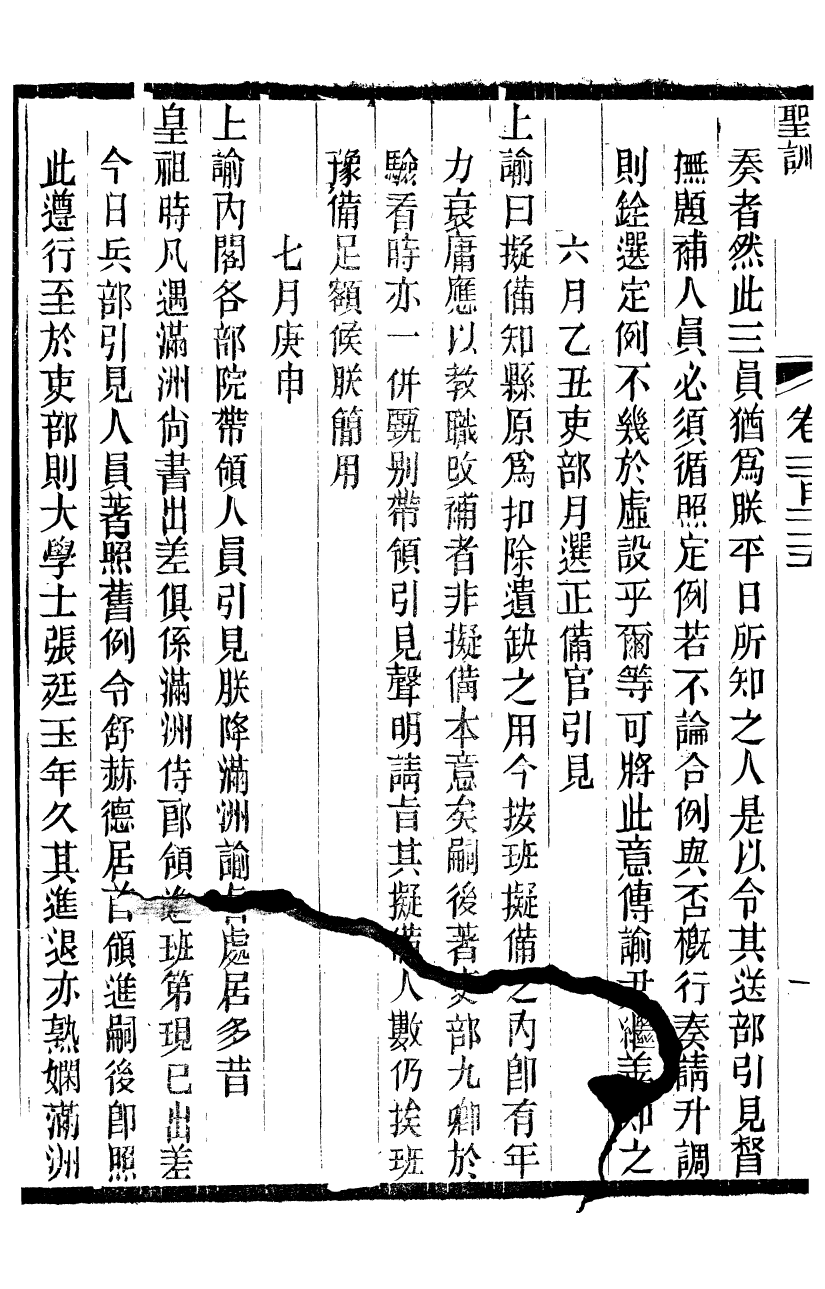 聖訓 卷二百二三 一
奏者然此三員猶為朕平日所知之人是以令其送部引見督
撫題補人員必須循照定例若不論合例與否概行奏請升調
則銓選定例不幾於虛設乎爾等可將此意傳諭尹繼善知之
六月乙丑吏部月選正備官引見
上諭曰擬備知縣原為扣除遺缺之用今按班擬備之內即有年
力衰庸應以教職改補者非擬備本意矣嗣後著吏部九卿於
驗看時亦一併甄別帶領引見聲明請旨其擬備人數仍挨班
豫備足額候朕簡用
七月庚申
上諭內閣各部院帶領人員引見朕降滿洲諭旨處居多昔
皇祖時凡遇滿洲尚書出差俱係滿洲侍郎領進班第現已出差
今日兵部引見人員著照舊例令舒赫德居首領進嗣後即照
此遵行至於吏部則大學士張廷玉年久其進退亦熟嫻滿洲